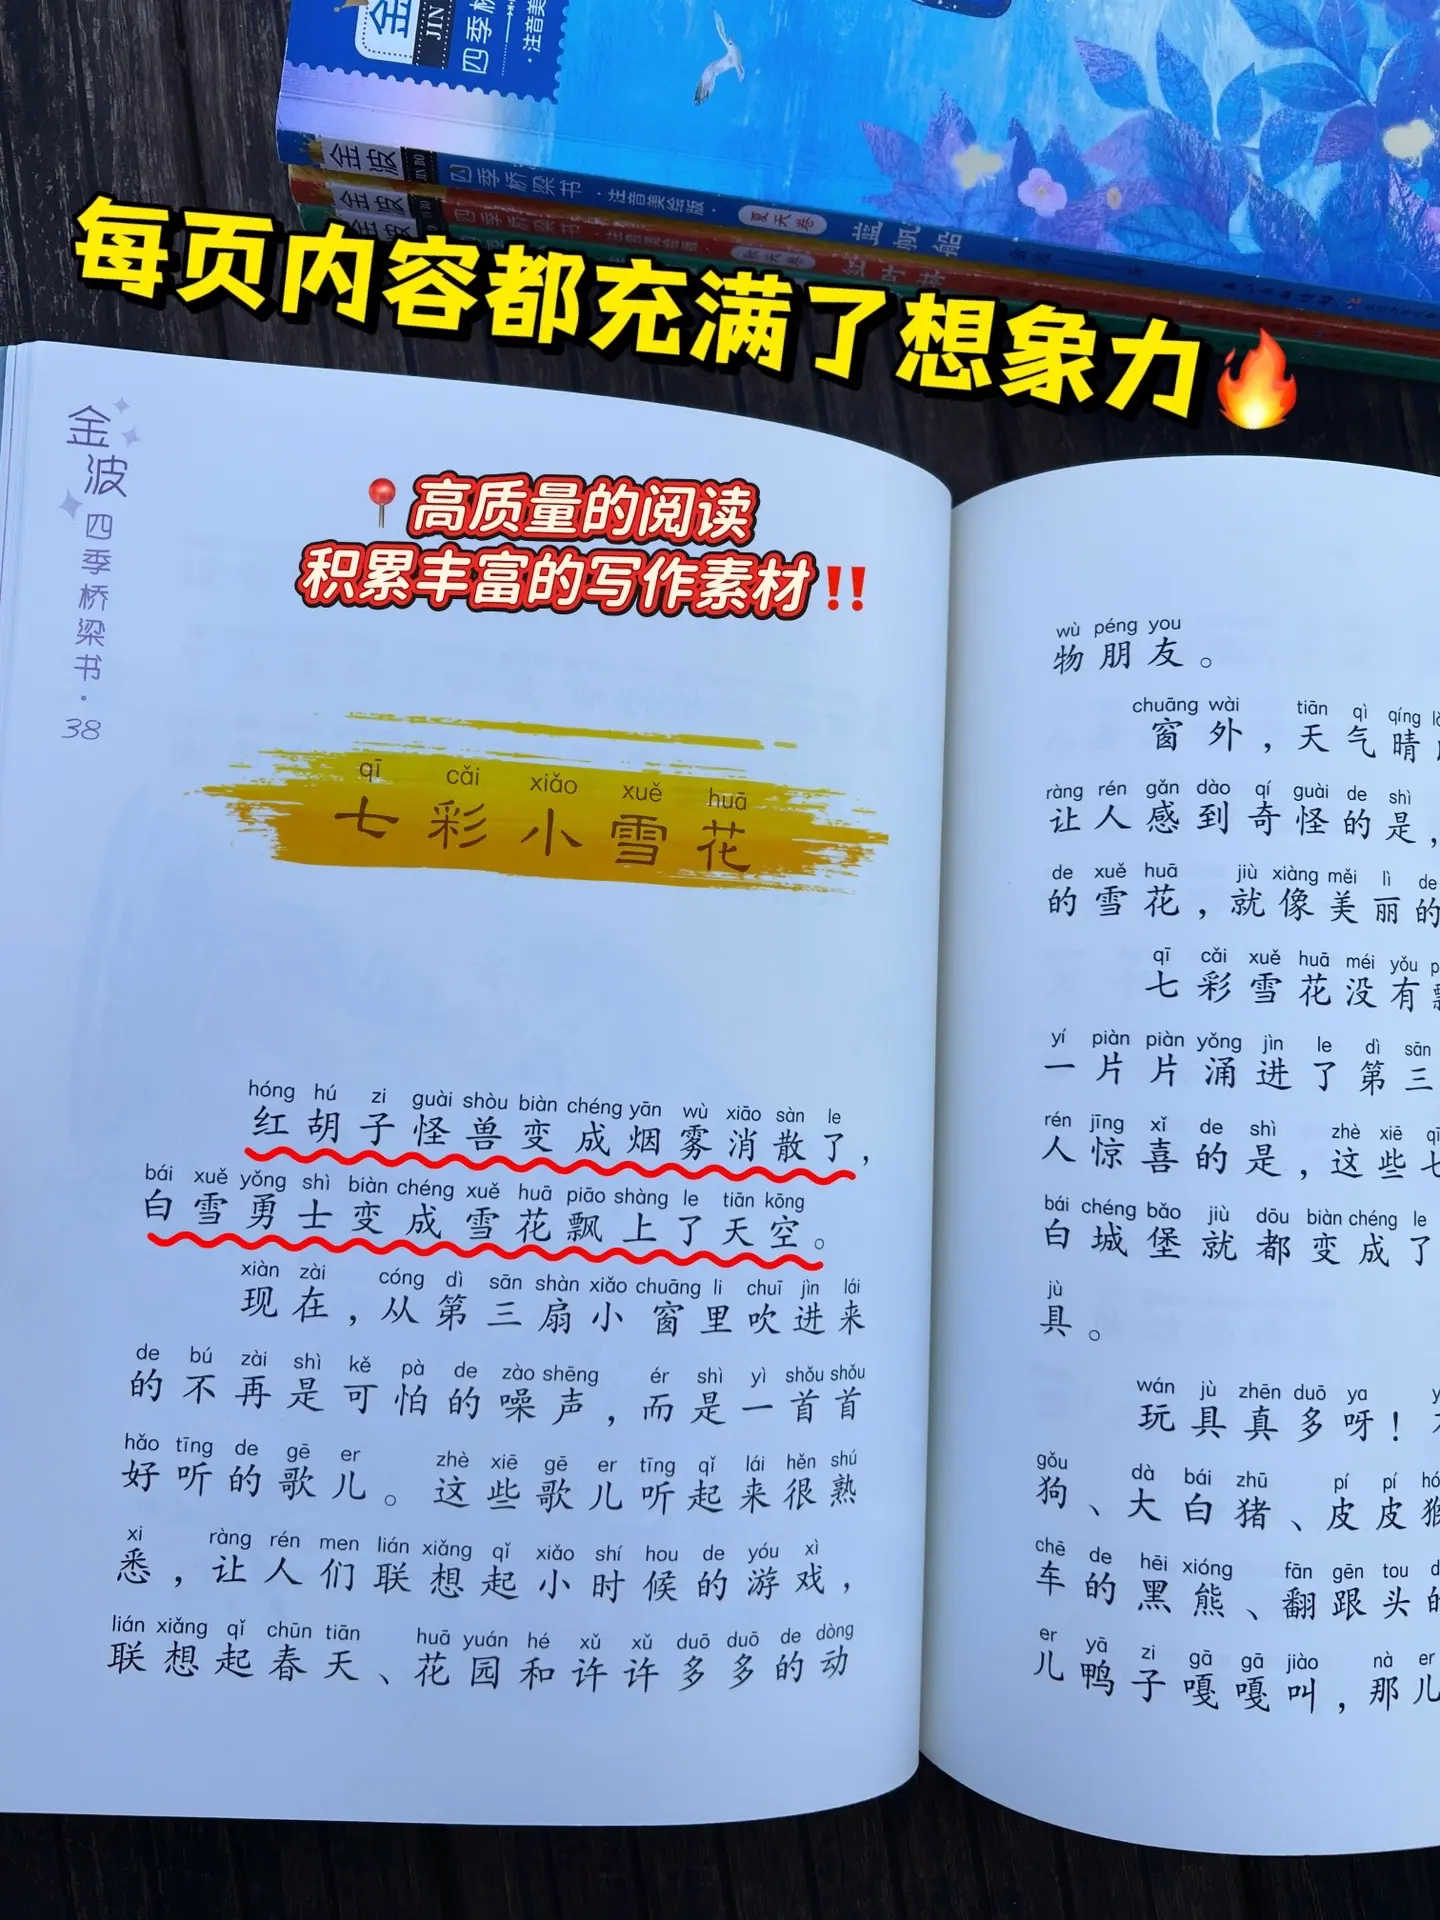 金
JIN
四季
注音美
金波
JIN BO
四季桥梁书·注音美绘版·
夏天卷
蓝帆船
金波
四季桥梁书
每页内容都充满了想象力🔥
📍高质量的阅读
积累丰富的写作素材‼️
金波
四季桥梁书·
38
qī cǎi xiǎo xuě huā
七彩小雪花
hóng hú zi guài shòu biàn chéng yān wù xiāo sàn le
红胡子怪兽变成烟雾消散了，
bái xuě yǒng shì biàn chéng xuě huā piāo shàng le tiān kōng
白雪勇士变成雪花飘上了天空。
xiàn zài cóng dì sān shàn xiǎo chuāng li chuī jìn lái
现在，从第三扇小窗里吹进来
de bú zài shì kě pà de zào shēng ér shì yì shǒu shǒu
的不再是可怕的噪声，而是一首首
hǎo tīng de gē er zhè xiē gē er tīng qǐ lái hěn shú
好听的歌儿。这些歌儿听起来很熟
xi ràng rén men lián xiǎng qǐ xiǎo shí hou de yóu xì
悉，让人们联想起小时候的游戏，
lián xiǎng qǐ chūn tiān huā yuán hé xǔ xǔ duō duō de dòng
联想起春天、花园和许许多多的动
wù péng you
物朋友。
chuāng wài tiān qì qíng
窗外，天气晴
ràng rén gǎn dào qí guài de shì
让人感到奇怪的是，
de xuě huā jiù xiàng měi lì de
的雪花，就像美丽的
qī cǎi xuě huā méi yǒu
七彩雪花没有
yí piàn piàn yǒng jìn le dì sān
一片片涌进了第三
rén jīng xǐ de shì zhè xiē
人惊喜的是，这些七
bái chéng bǎo jiù dōu biàn chéng le
白城堡就都变成了
jù
具。
wán jù zhēn duō ya
玩具真多呀！
gǒu dà bái zhū pí pí
狗、大白猪、皮皮猴
chē de hēi xióng fān gēn tou
车的黑熊、翻跟头的
er yā zi gā gā jiào nà er
儿鸭子嘎嘎叫，那儿